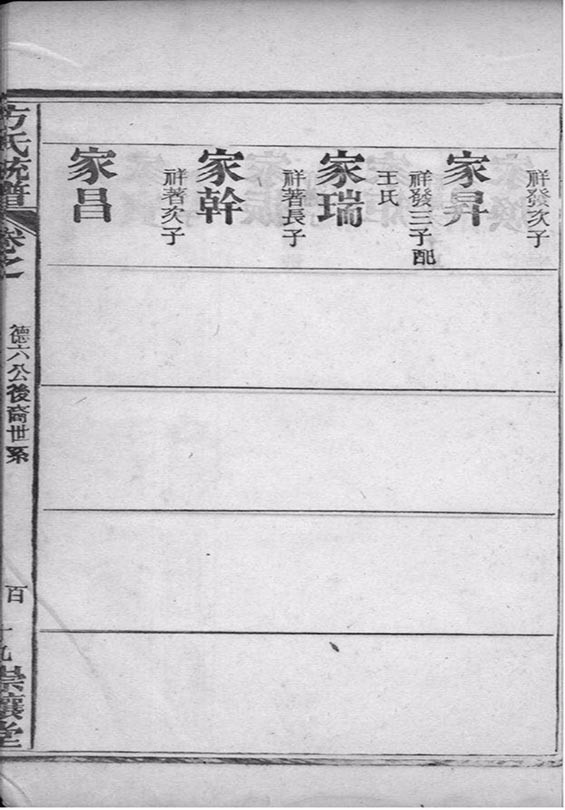 祥發次子
家昇
祥發三子配
王氏
家瑞
祥著長子
家幹
祥著次子
家昌
方氏統譜
卷之
德六公後裔世系
百十九
堂